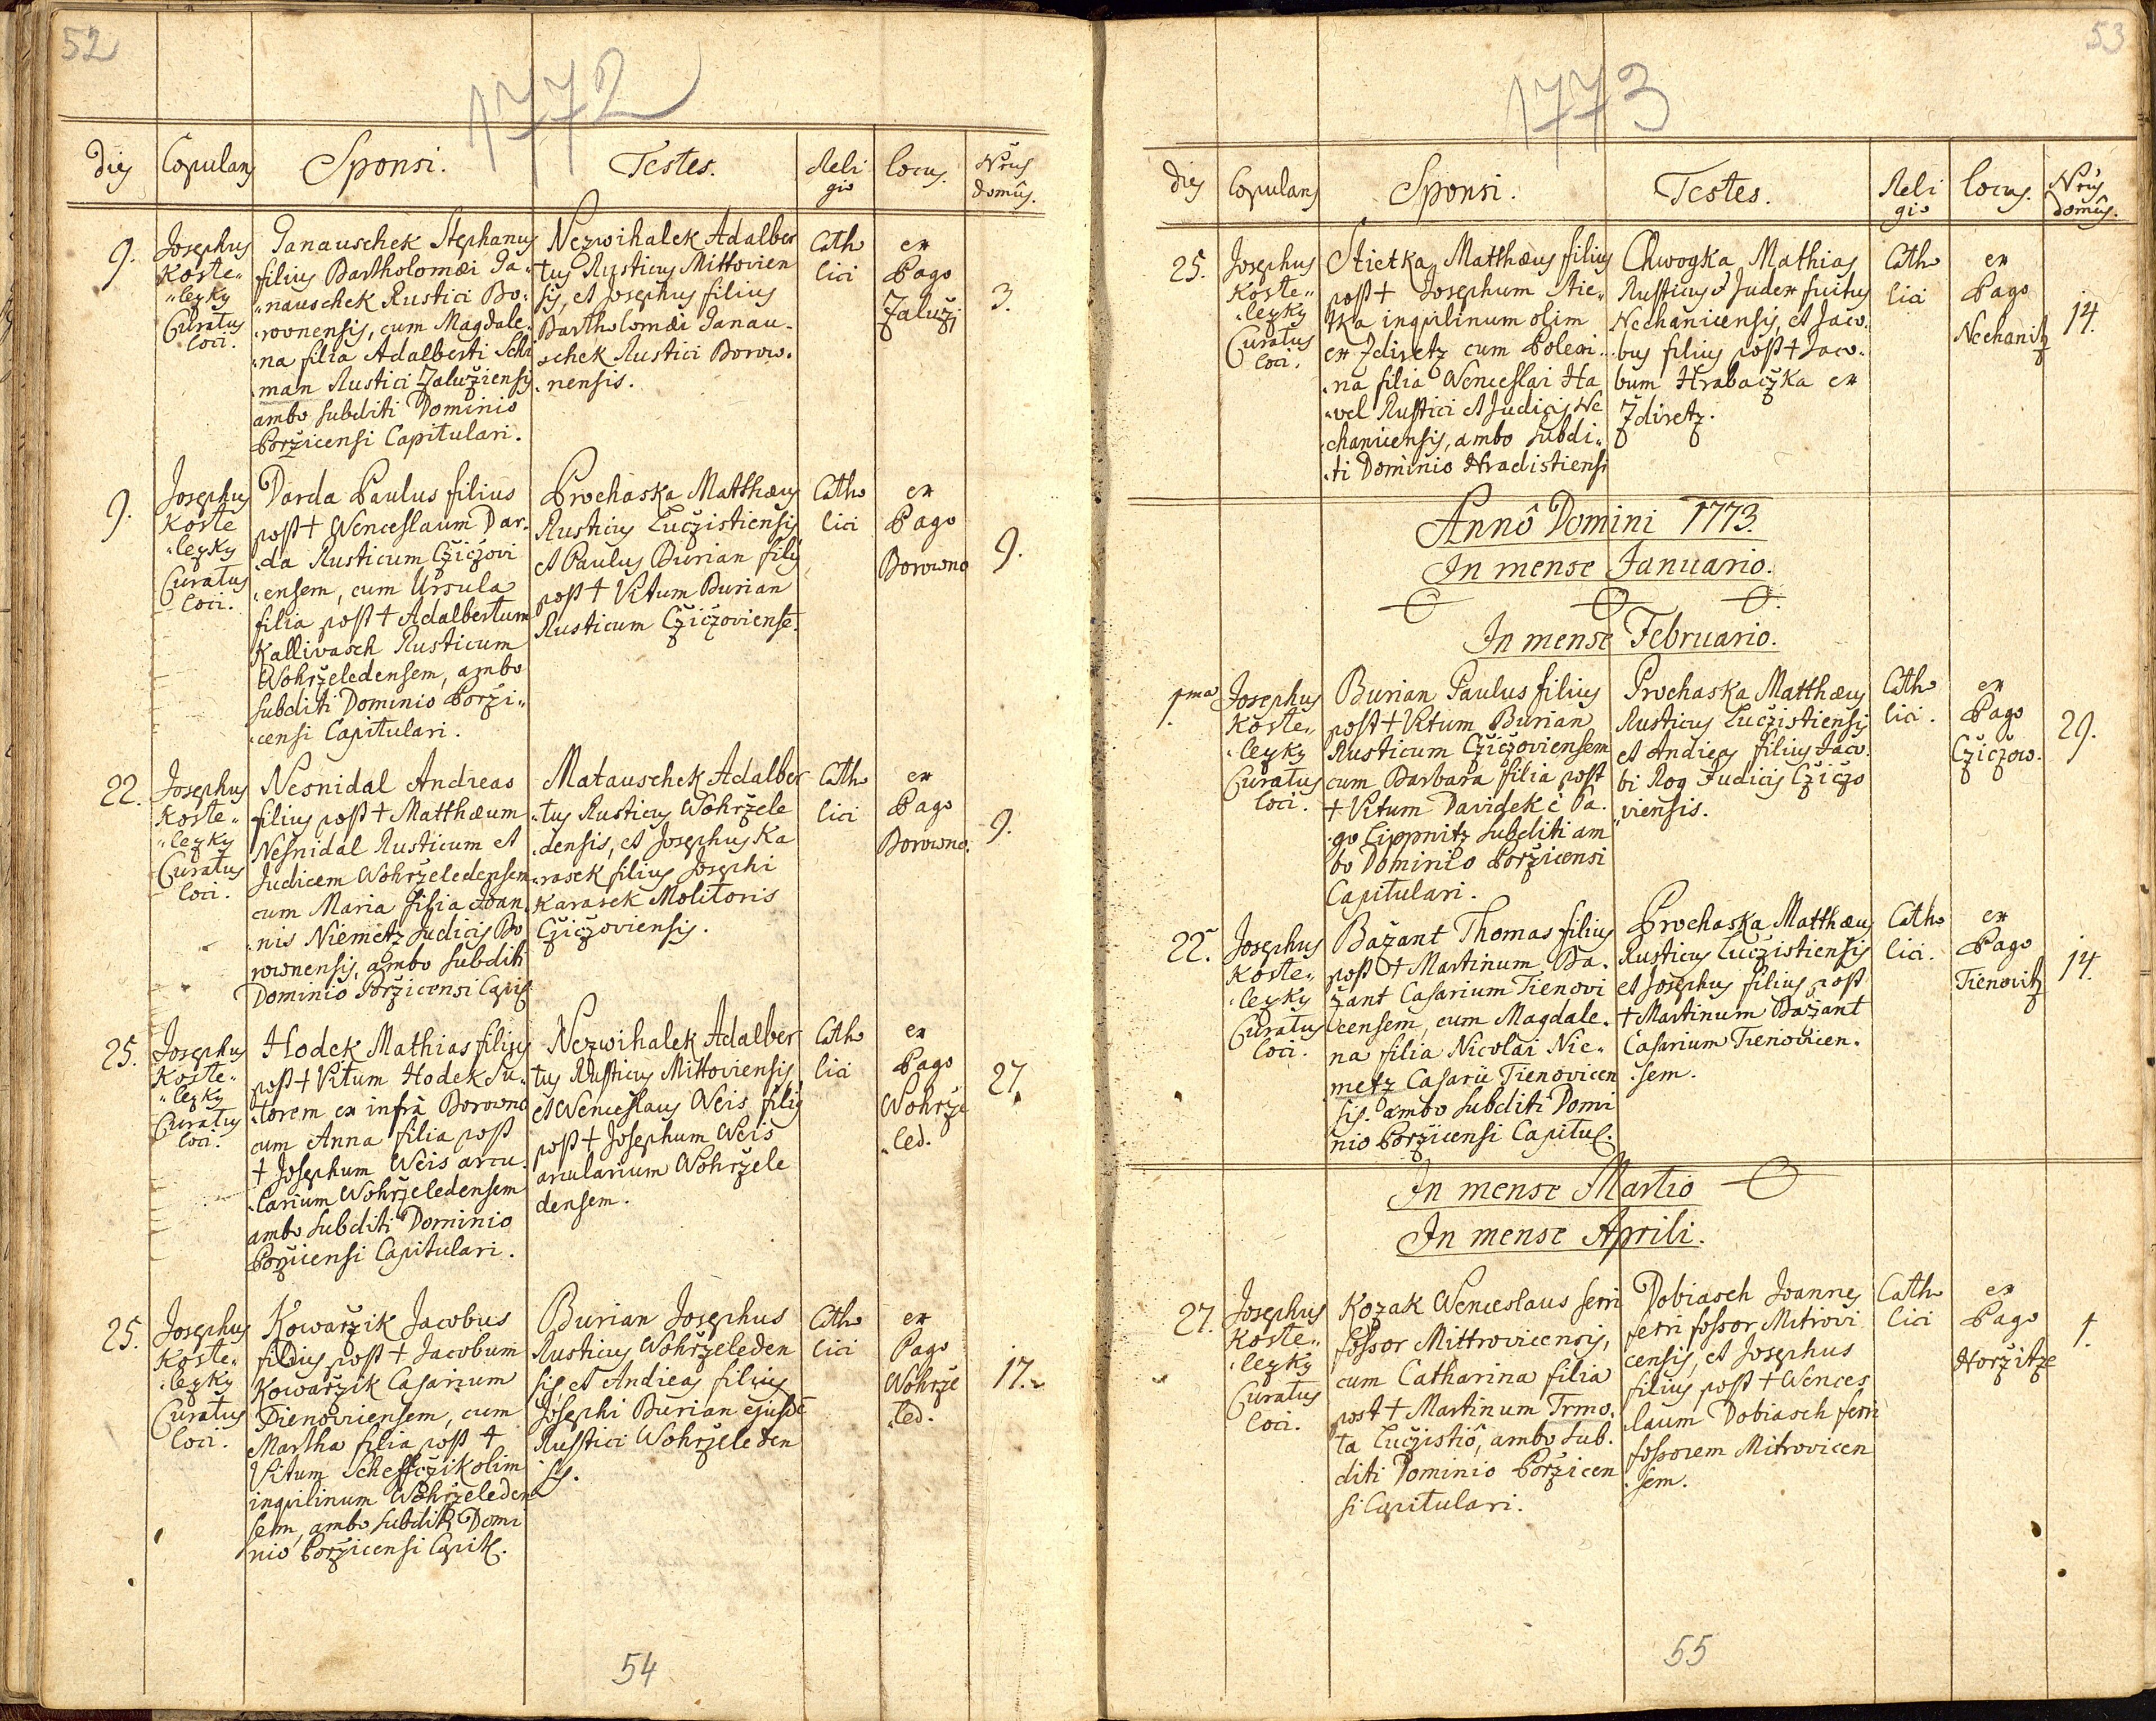 52
1772
dies Copulans Sponsi. Testes. Reli gio locus. Nrus domûs.
9. Josephus Koste„ „lezky Curatus loci.
Janauschek Stephanus
filius Bartholomæi Ja„
„nauschek Rustici Bo„
rovnensis, cum Magdale„
na filia Adalberti Schi
man Rustici Zaluziensis
ambo subditi Dominio
Porzicensi Capitulari.
Nezwihalek Adalber
tus Rusticus Mittovien
sis, et Josephus filius
Bartholomæi Janau„
schek Rustici Borow„
nensis.
Catho lici
ex Pago Zaluzi
3.
9. Josephus Koste „lezky Curatus loci.
Darda Paulus filius
post † Wenceslaum Dar„
da Rusticum Cziczovi
ensem, cum Ursula
filia post † Adalbertum
Kallivasch Rusticum
Wohrzeledensem, ambo
subditi Dominio Porzi„
censi Capitulari.
Prochaska Matthæus
Rusticus Luczistiensis
et Paulus Burian filius
post † Vitum Burian
Rusticum Cziczoviense.
Catho lici
ex Pago Borowno
9.
22. Josephus Koste„ „lezky Curatus loci.
Nesnidal Andreas
filius post † Matthæum
Nesnidal Rusticum et
Judicem Wohrzeledensem
cum Maria filia Joan„
nis Niemetz Judicis Bo
rownensis, ambo subditi
Dominio Porzicensi Capit.
Matauschek Adalber
tus Rusticus Wohrzele
densis, et Josephus Ka
rasek filius Josephi
Karasek Molitoris
Cziczoviensis.
Catho lici
ex Pago Borowno.
9.
25. Josephus Koste„ „lezky Curatus loci.
Hodek Mathias filius
post † Vitum Hodek Su„
torem ex infra Borowno
cum Anna filia post
† Josephum Weis arcu„
larium Wohrzeledensem
ambo subditi Dominio
Porzicensi Capitulari.
Nezwihalek Adalber
tus Rusticus Mittoviensis
et Wenceslaus Weis filius
post † Josephum Weis
arcularium Wohrzele
densem.
Catho lici
ex Pago Wohrze „led.
27.
25. Josephus Koste„ „lezky Curatus loci.
Kowarzik Jacobus
filius post † Jacobum
Kowarzik Casarium
Tienoviensem, cum
Martha filia post †
Vitum Schefczik olim
inquilinum Wohrzeleden
sem, ambo subditi Domi
nio Porzicensi Capit.
Burian Josephus
Rusticus Wohrzeleden
sis et Andreas filius
Josephi Burian ejusdē
Rustici Wohrzeleden
sis.
Catho lici
ex Pago Wohrze „led.
17.
54
53
1773
dies Copulans Sponsi. Testes. Reli gio locus. Nrus domûs.
25. Josephus Koste„ „lezky Curatus loci.
Stietka Matthæus filius
post † Josephum Stie„
tka inquilinum olim
ex Zdiretz cum Polexi„
na filia Wenceslai Ha
„vel Rustici et Judicis Ne
chanicensis, ambo subdi„
ti Dominio Hradistiensi
Chwogka Mathias
Rusticus & Judex fuitus
Nechanicensis, et Jaco„
bus filius post † Jaco„
bum Hrabaczka ex
Zdiretz.
Catho lici
ex Pago Nechanitz
14.
Annô Domini 1773.
In mense Januario.
In mense Februario.
1ma Josephus Koste„ „lezky Curatus loci.
Burian Paulus filius
post † Vitum Burian
Rusticum Cziczoviensem
cum Barbara filia post
† Vitum Davidek è Pa„
go Lippnitz subditi am
bo Dominio Porzicensi
Capitulari.
Prochaska Matthæus
Rusticus Luczistiensis
et Andreas filius Jaco„
bi Rog Judicis Cziczo
viensis.
Catho lici.
ex Pago Cziczow.
29.
22. Josephus Koste„ „lezky Curatus loci.
Bažant Thomas filius
post † Martinum Ba„
žant Casarium Tienovi
censem, cum Magdale„
na filia Nicolai Nie„
metz Casarii Tienovicen
sis. ambo subditi Domi
nio Porzicensi Capitul.
Prochaska Matthæus
Rusticus Luczistiensis
et Josephus filius post
† Martinum Bažant
Casarium Tienovicen„
sem.
Catho lici.
ex Pago Tienovitz
14.
In mense Martio
In mense Aprili.
27. Josephus Koste„ „lezky Curatus loci.
Kozak Wenceslaus ferri
fossor Mittrovicensis,
cum Catharina filia
post † Martinum Trmo„
ta Luczistiô, ambo sub„
diti Dominio Porzicen
si Capitulari.
Dobiasch Joannes
ferri fossor Mitrovi
censis, et Josephus
filius post † Wences
laum Dobiasch ferri
fossorem Mitrovicen
sem.
Catho lici
ex Pago Horzitze
1.
55